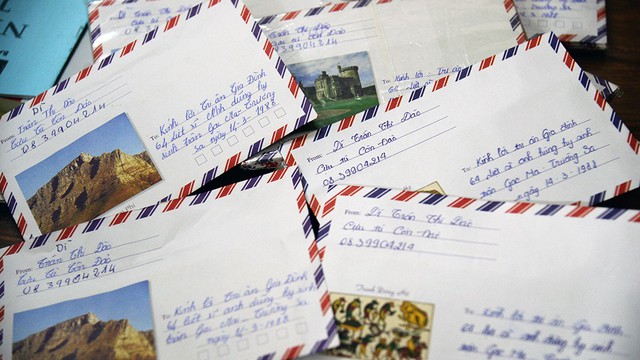 Dì
From: Trần Thị Đào
Cựu tù Côn Đảo
08.39904214
To: Kính lời tri ân Gia Đình
64 liệt sĩ anh dũng hy
sinh trận Gạc Ma-Trường
Sa ngày 14-3-1988
Dì Trần Thị Đào
Cựu tù Côn Đảo
08.39904214
To: Kính lời tri ân
From: Dì Trần Thị Đào
Cựu tù Côn Đảo
08.39904214
To: Kính lời tri ân Gia Đình
64 liệt sĩ anh hùng
trận Gạc Ma Trường Sa
ngày 14-3-1988
Dì
From: Trần Thị Đào
Cựu tù Côn Đảo
08.39904214
To: Kính lời tri ân Gia Đình
64 liệt sĩ anh dũng hy sinh
trận Gạc Ma Trường Sa
ngày 14-3-1988
From: Dì Trần Thị Đào
Cựu tù Côn Đảo
08.39904214
To: Kính lời tri ân Gia Đình
64 liệt sĩ anh hùng hy sinh
trận Gạc Ma